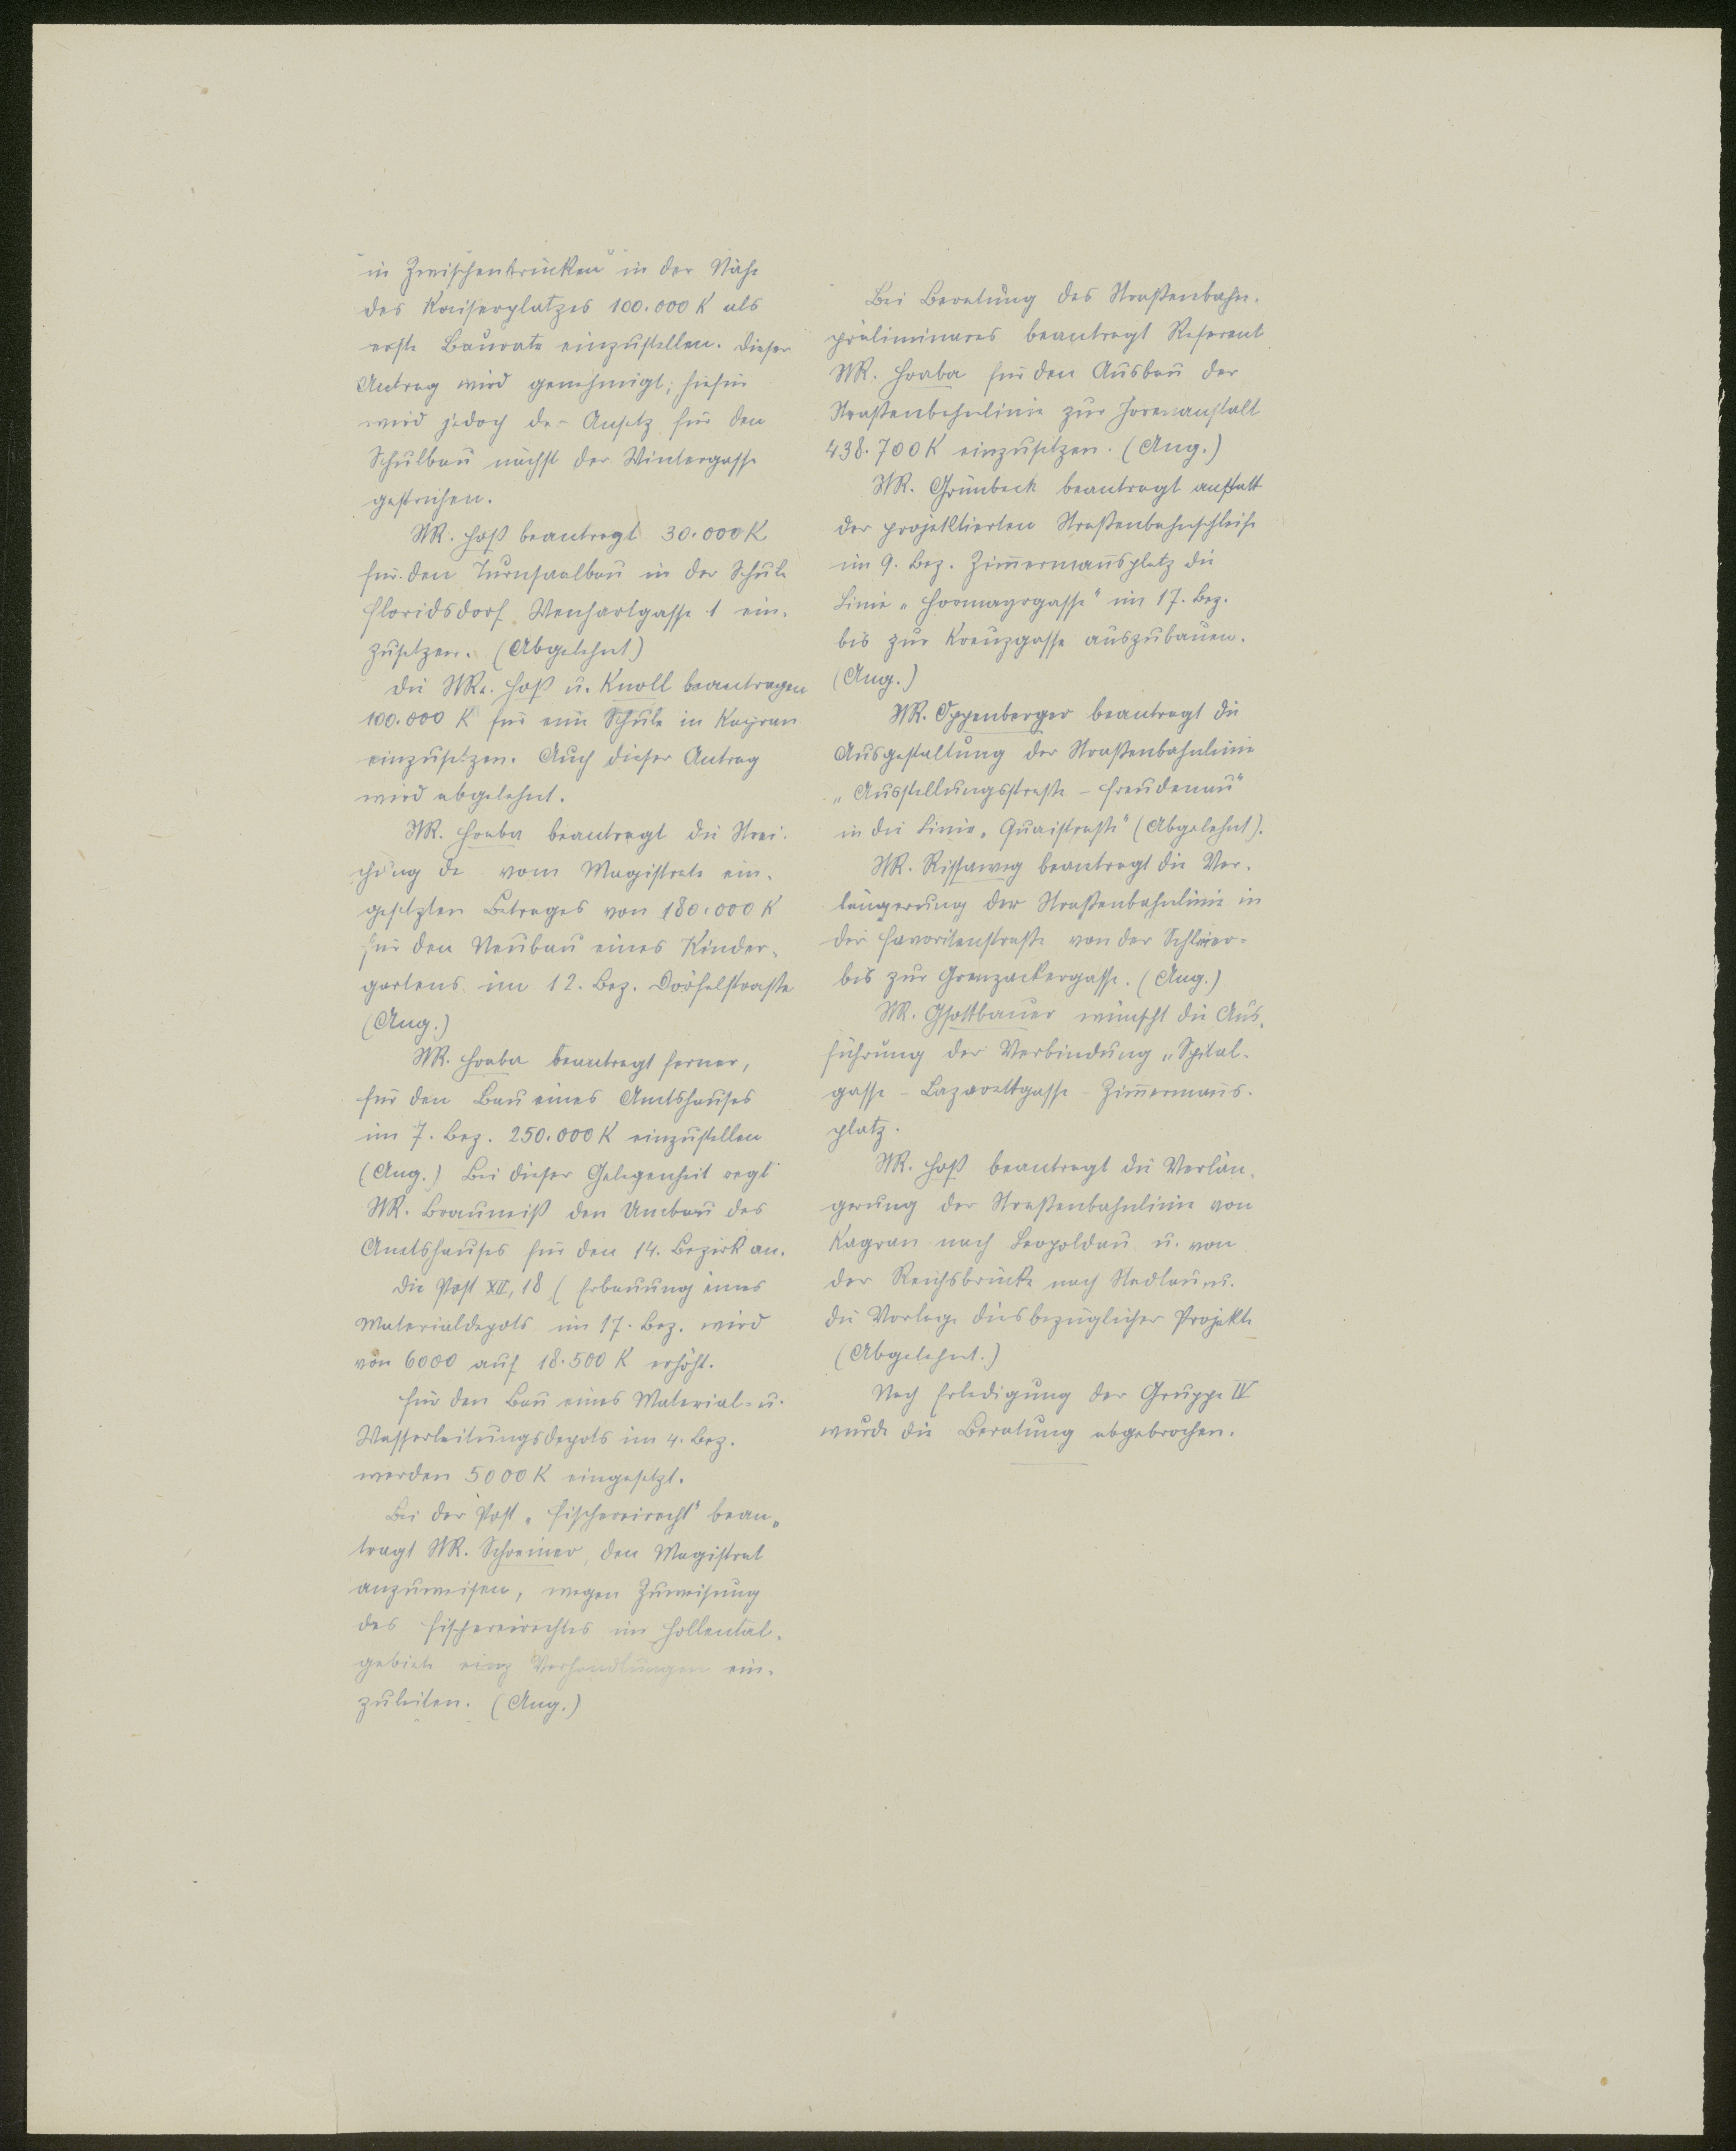 in Zwischenbrücken" in der Nähe
des Kaiserplatzes 100.000 K als
erste Baurate einzustellen. Dieser
Antrag wird genehmigt, hiefür
wird jedoch der Ansatz für den
Schulbau nächst der Wintergasse
gestrichen.
StR. Hoß beantragt 30.000 K
für den Turnsaalbau in der Schule
Floridsdorf Wenhartgasse 1 ein-
zusetzen. (Abgelehnt)
Die StRe. Hoß u. Knoll beantragen
100.000 K für eine Schule in Kagran
einzusetzen. Auch dieser Antrag
wird abgelehnt.
StR. Hraba beantragt die Strei-
chung de vom Magistrate ein-
gesetzten Betrages von 180.000 K
für den Neubau eines Kinder-
gartens im 12. Bez. Dörfelstraße
(Ang.)
StR. Hraba beantragt ferner,
für den Bau eines Amtshauses
im 7. Bez. 250.000 K einzustellen
(Ang.) Bei dieser Gelegenheit regt
StR. Brauneiß den Umbau des
Amtshauses für den 14. Bezirk an.
Die Post XII, 18 (Erbauung eines
Materialdepots im 17. Bez. wird
von 6000 auf 18.500 K erhöht.
Für den Bau eines Material- u.
Wasserleitungsdepots im 4. Bez.
werden 5000 K eingesetzt.
Bei der Post „Fischereirecht" bean-
tragt StR. Schreiner, den Magistrat
anzuweisen, wegen Zuweisung
des Fischereirechtes im Höllental-
gebiete Verhandlungen ein-
zuleiten. (Ang.)
Bei Beratung des Straßenbahn-
präliminares beantragt Referent
StR. Hraba für den Ausbau der
Straßenbahnlinie zur Irrenanstalt
438.700 K einzusetzen. (Ang.)
StR. Grünbeck beantragt anstatt
der projektierten Straßenbahnschleife
im 9. Bez. Zim̅erman̅splatz die
Linie „Hormayrgasse" im 17. Bez.
bis zur Kreuzgasse auszubauen.
(Ang.)
StR. Oppenberger beantragt die
Ausgestaltung der Straßenbahnlinie
„Ausstellungsstraße - Freudenau"
in die Linie „Quaistraße" (Abgelehnt).
StR. Rissaweg beantragt die Ver-
längerung der Straßenbahnlinie in
der Favoritenstraße von der Schleier-
bis zur Grenzackergasse. (Ang.)
StR. Gsottbauer wünscht die Aus-
führung der Verbindung „Spital-
gasse - Lazarettgasse - Zim̅erman̅s-
platz.
StR. Hoß beantragt die Verlän-
gerung der Straßenbahnlinie von
Kagran nach Leopoldau u. von
der Reichsbrücke nach Stadlau u.
die Vorlage diesbezüglicher Projekte
(Abgelehnt.)
Nach Erledigung der Gruppe IV
wurde die Beratung abgebrochen.